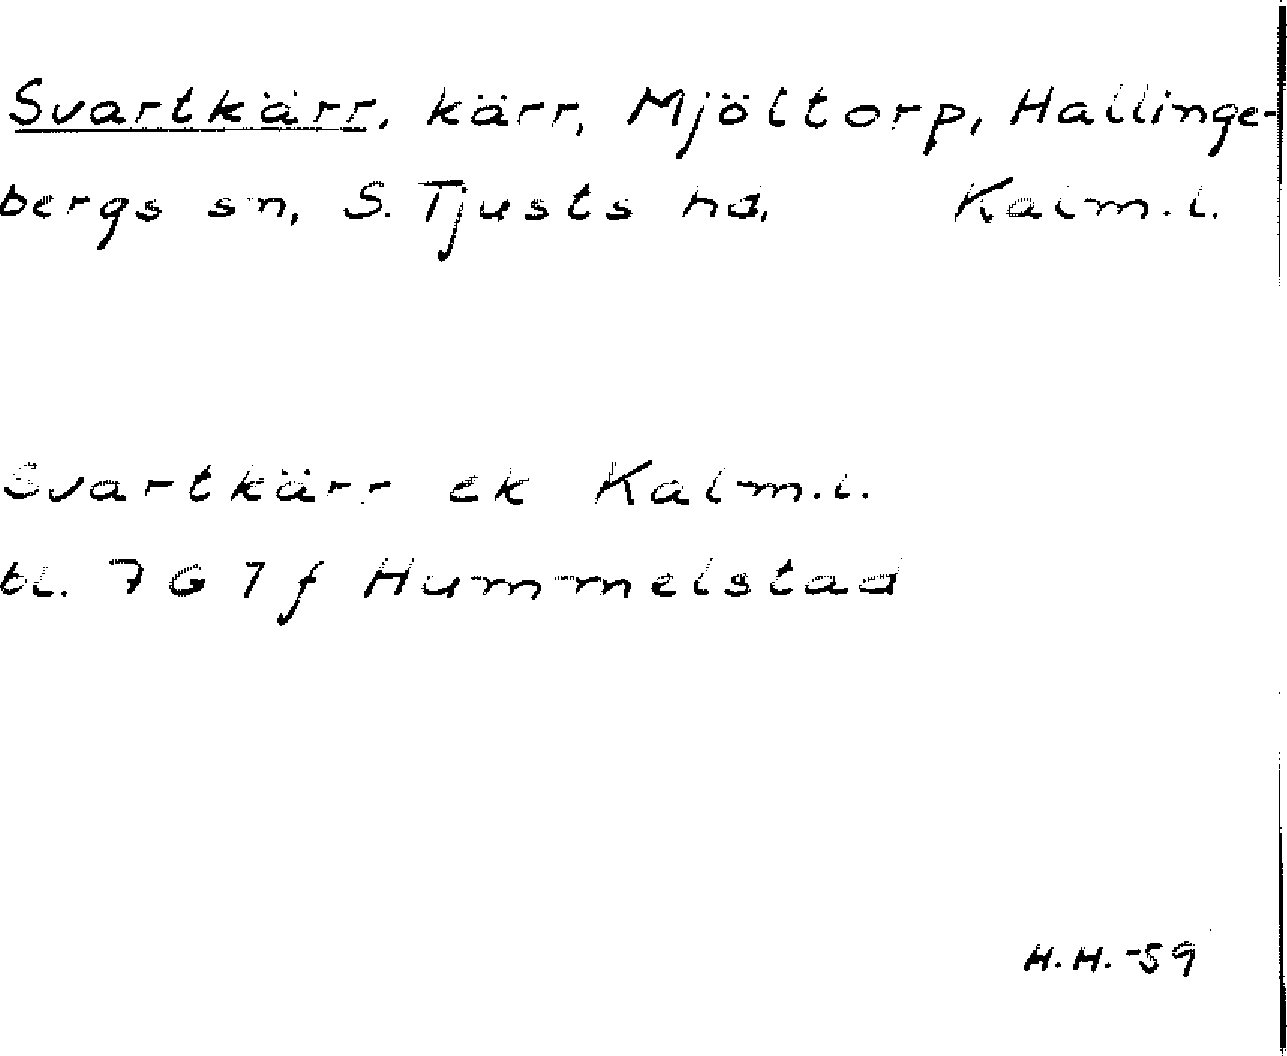 Svartkärr, kärr, Mjöltorp, Hallinge-
bergs sn, S. Tjusts hd, Kalm.l.
Svartkärr ek Kalm.l.
bl. 7 G 7 f Hummelstad
H.H. -59